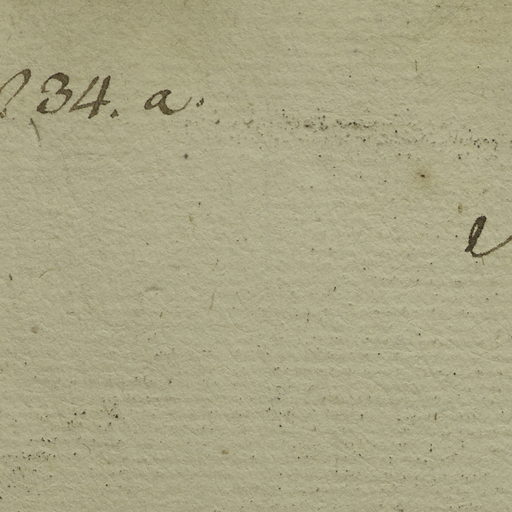 34. a.